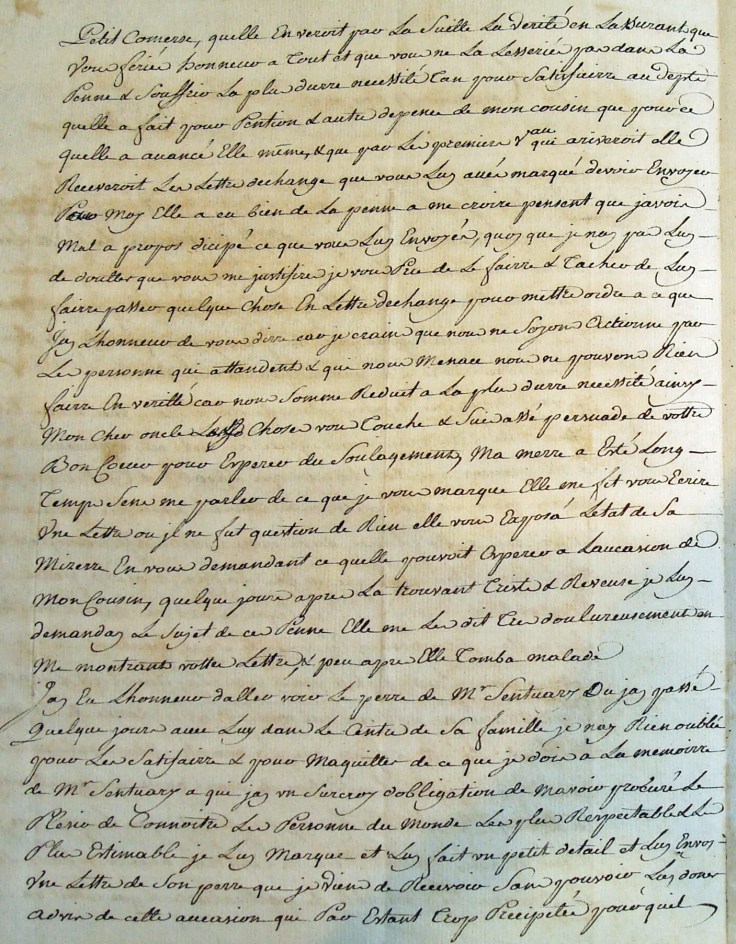 Petit Comerse, quelle Enveroit par La Suille La verité en La Surant que
Vous feriè honneur a Tout et que vou ne La Lesseriè pas dans La
Penne & Souffrir La plu durre necessité Tan pour Satisfairre au depte
quelle a fait pour Pention & autre depence de mon cousin que pour ce
quelle a auancé Elle même, & que par Les premiers Vau qui ariveroit elle
Receveroit Les Lettre dechange que vous Luy avés marqué devoir Envoyer
Pour Moy Elle a eu bien de La penne a me croire pensent que javois
Mal a propos dicipé ce que vous Luy Envoyés, quoy que je nay pas Luy
de doutter que vous me justifire je vou Prie de Le fairre & Tacher de Luy
fairre passer quelque chose En Lettre dechange pour mettre ordre a ce que
Jay Lhonneur de vous dirre car je crain que nou ne Soyon Actionne par
Les personne qui attandent & qui nous Menace nou ne pouvons Rien
fairre En veritté car nou Somme Reduit a La plu durre necessité ainsy
Mon cher oncle La Chose vou Touche & Suis assé persuade de vottre
Bon Coeur pour Esperer du Soulagement, Ma merre a Esté Long
Temp Sens me parler de ce que je vous marque Elle me fit vous Ecrire
Une Lettre ou jl ne fut question de Rien elle vous Exposa Letat de Sa
Mizerre En vous demandant ce quelle pouvoit Esperer a Laucasion de
Mon Cousin, quelque jours apre La trouvant Triste & Reveuse je Luy
demanday Le Sujet de ces Penne Elle me Les dit Tres doulureusement en
Me montrant vottre Lettre, & peu apre Elle Tomba malade
Jay Eu Lhonneur daller voir Le perre de Mr Sentuary Ou jay passé
Quelque jours avec Luy dans Le Centre de Sa famille je nay Rien oublié
pour Les Satisfairre & pour Maquitter de ce que je dois a La memoirre
de Mr Sentuary a qui jay un Surcroy dobligation de Mavoir procuré Le
Plesir de Connoitre Les Personne du Monde Les plus Respectable & Le
Plus Estimable je Luy Marque et Luy fait un petit detail et Luy Envoy
Une Lettre de Son perre que je vien de Recevoir Sans pouvoir Luy doner
advis de cette aucasion qui Par Estant Trop Precipitée pour quil